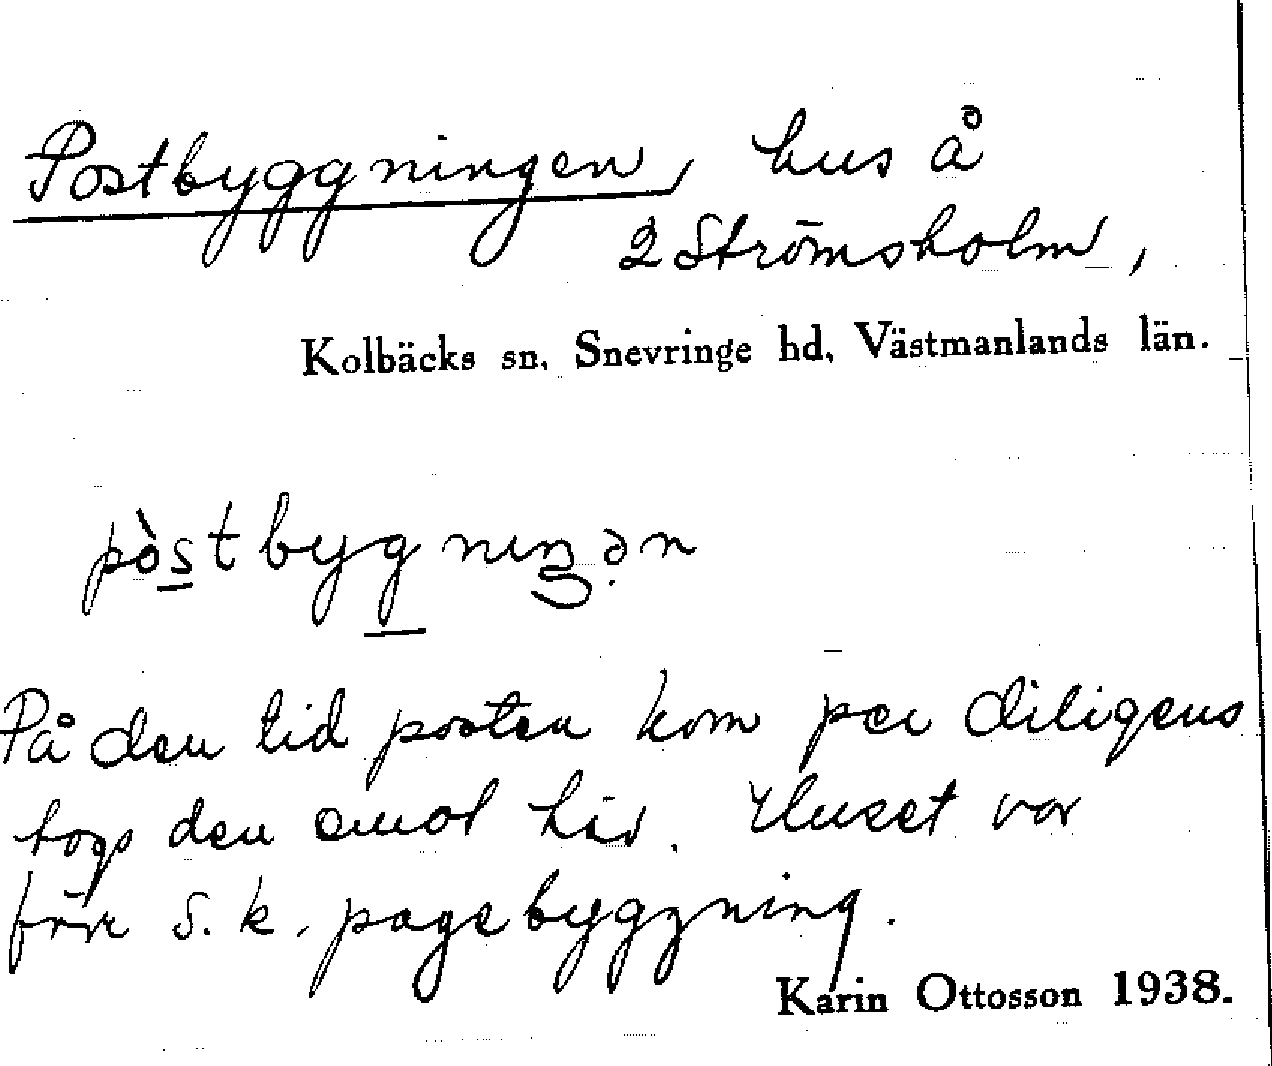 Postbyggningen, hus å
2 Strömsholm,
Kolbäcks sn, Snevringe hd, Västmanlands län.
pòstbygnıŋən
På den tid posten kom per diligens
togs den emot här. Huset var
förr s.k. pagebyggning.
Karin Ottosson 1938.